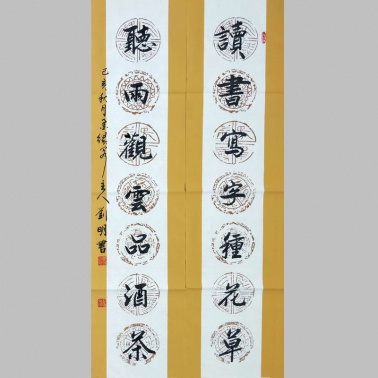 讀書寫字種花草
聽雨觀雲品酒茶
己亥秋月墨緣
主人劉明書